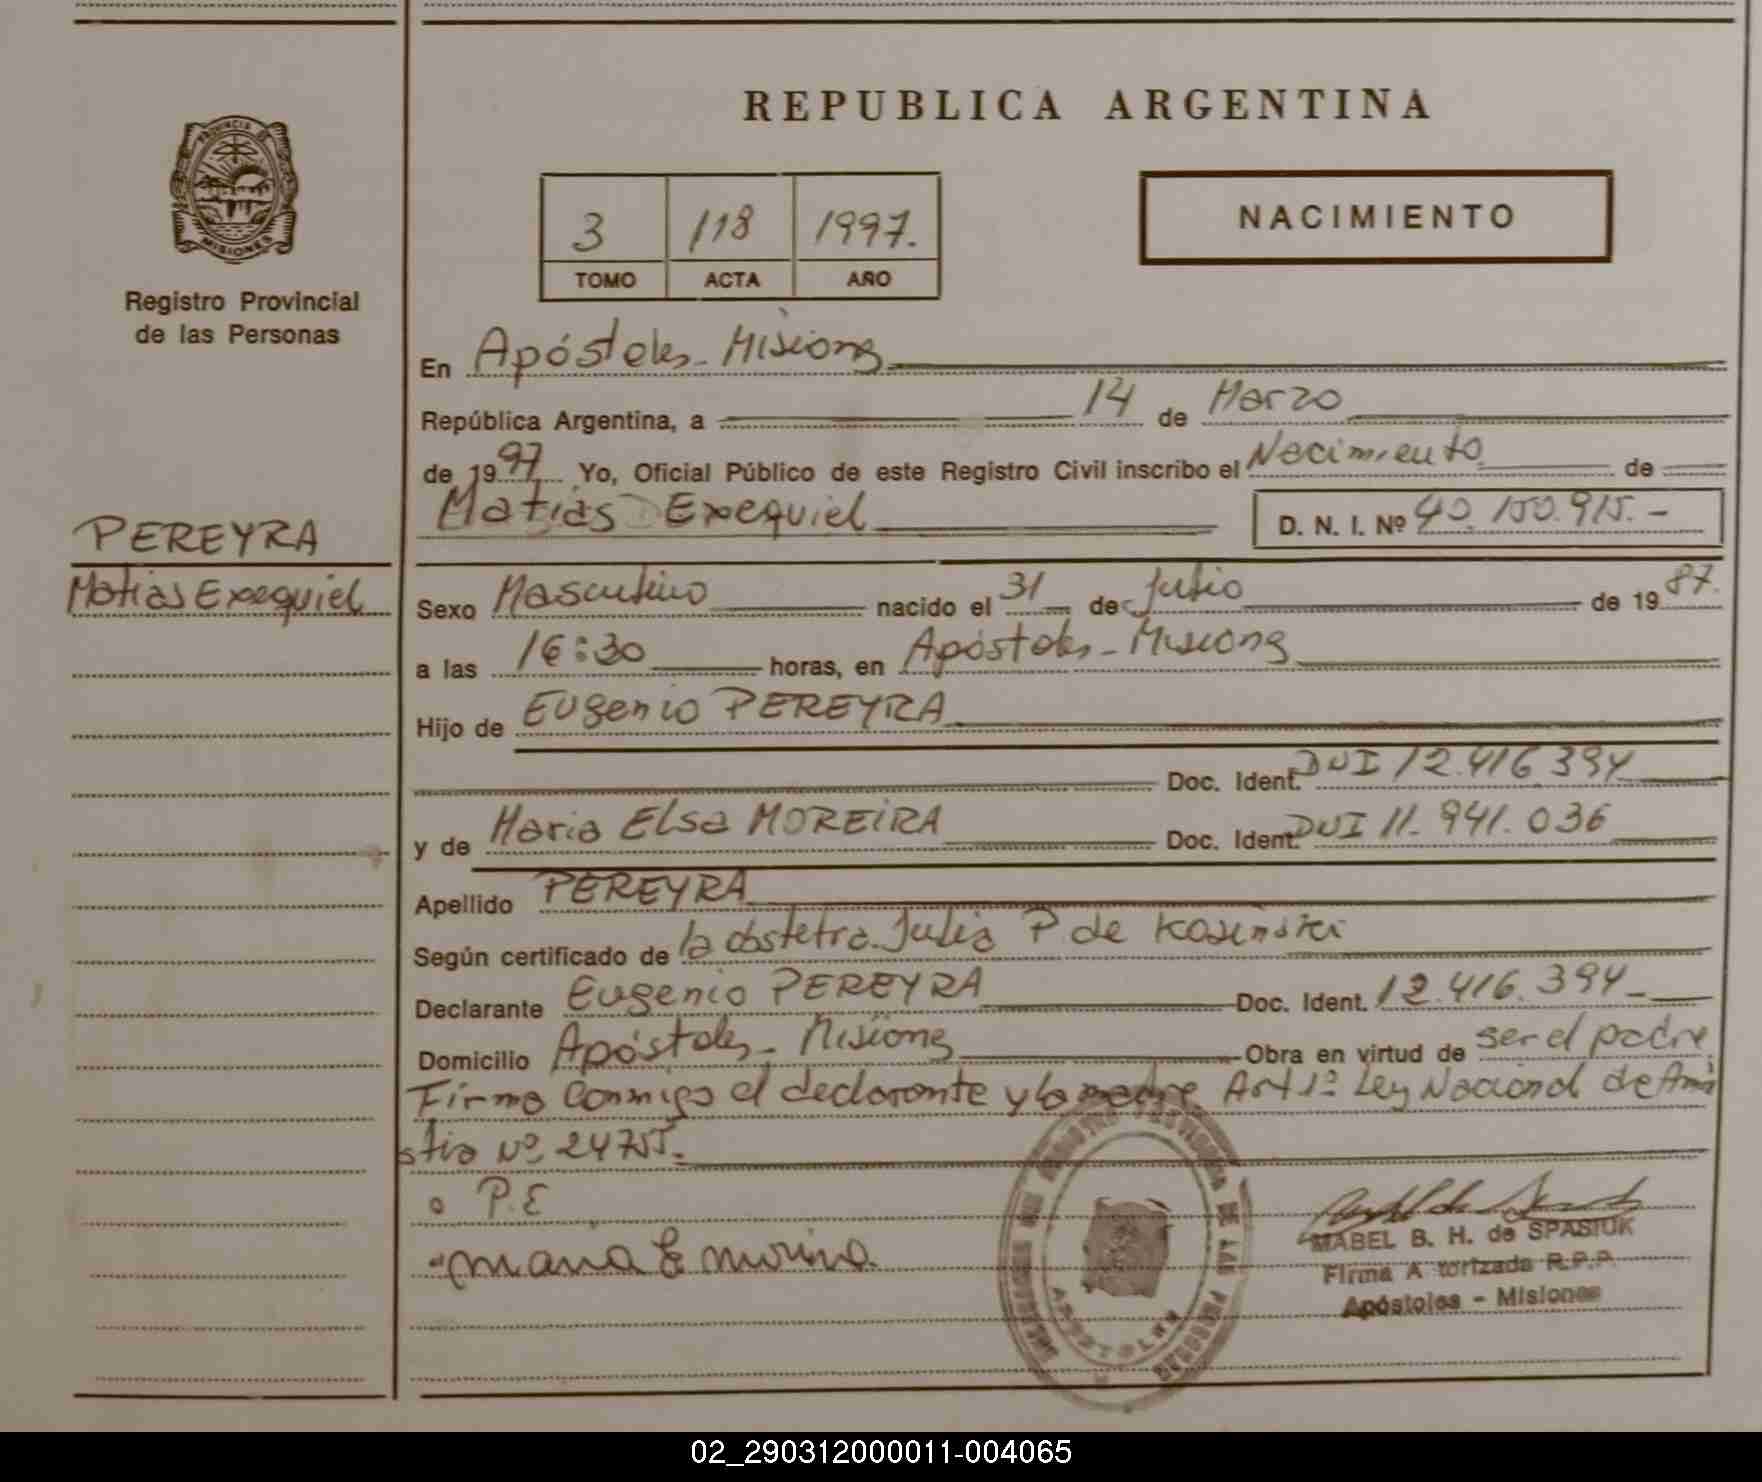 REPUBLICA ARGENTINA
PROVINCIA DE
MISIONES
Registro Provincial
de las Personas
3 118 1997.
TOMO ACTA AÑO
NACIMIENTO
En Apóstoles - Misiones
República Argentina, a 14 de Marzo
de 1997. Yo, Oficial Público de este Registro Civil inscribo el Nacimiento de
Matías Exequiel D. N. I. Nº 40.150.915.-
PEREYRA
Matias Exequiel
Sexo Masculino nacido el 31 de Julio de 1987.
a las 16:30 horas, en Apóstoles - Misiones
Hijo de Eugenio PEREYRA
Doc. Ident. DNI 12.416.394
y de Maria Elsa MOREIRA Doc. Ident. DNI 11.941.036
Apellido PEREYRA
Según certificado de la obstetra Julia P. de Kosinski
Declarante Eugenio PEREYRA Doc. Ident. 12.416.394-
Domicilio Apóstoles - Misiones Obra en virtud de ser el padre
Firma Conmigo el declarante y la madre Art 1º Ley Nacional de Amni
stia Nº 24755.
P.E
Maria E
MABEL B. H. de SPASIUK
Firma A torizada R.P.P.
Apóstoles - Misiones
02_290312000011-004065